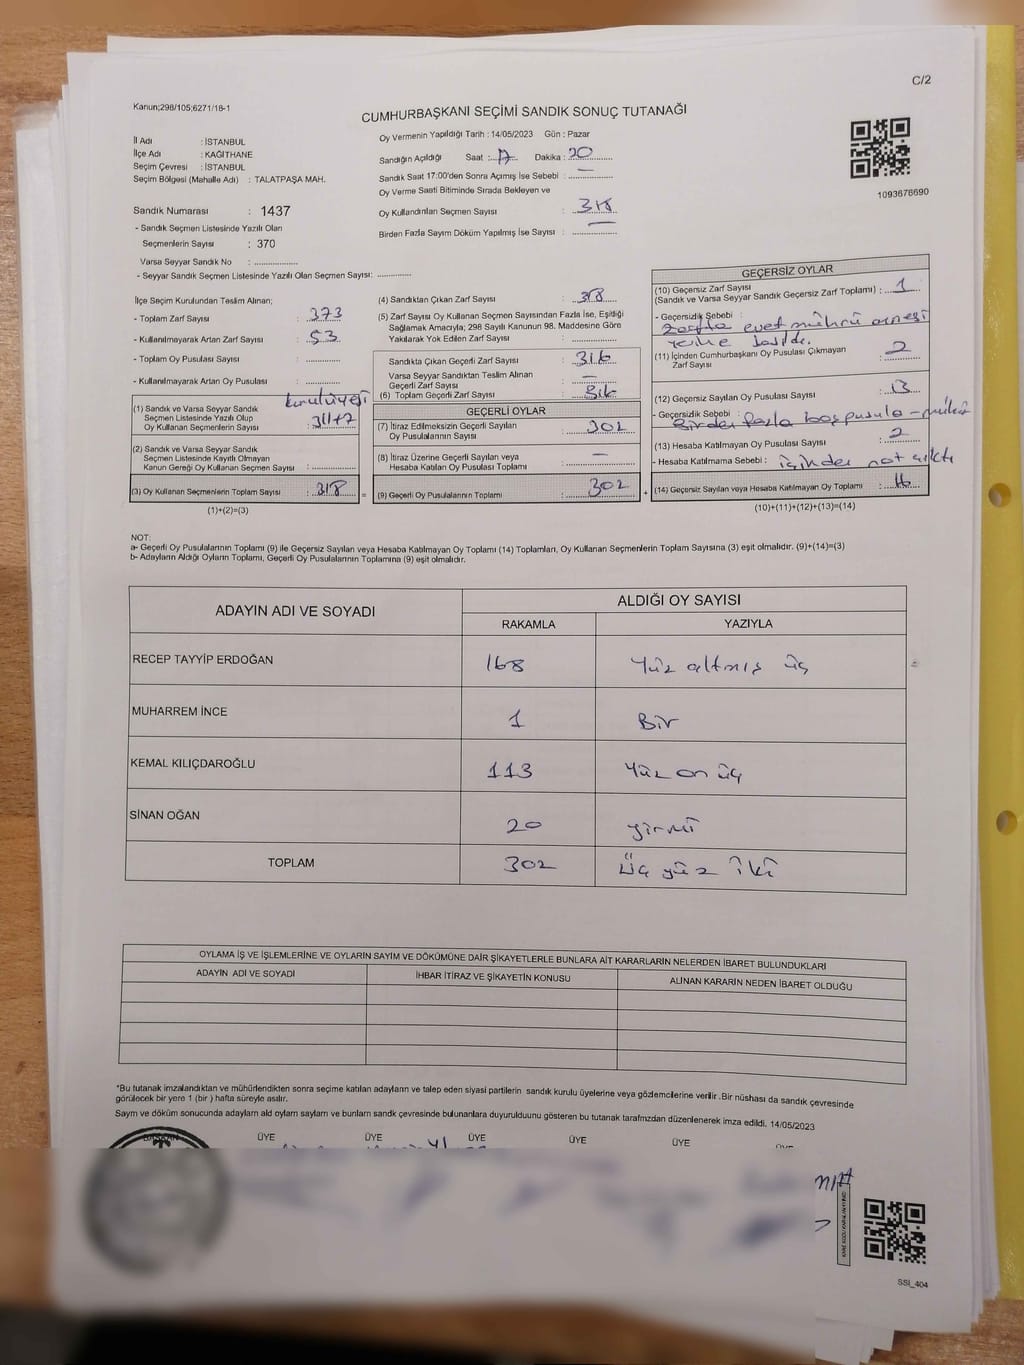 C/2
Kanun;298/105;6271/18-1
CUMHURBAŞKANI SEÇİMİ SANDIK SONUÇ TUTANAĞI
İl Adı : İSTANBUL
İlçe Adı : KAĞITHANE
Seçim Çevresi : İSTANBUL
Seçim Bölgesi (Mahalle Adı) : TALATPAŞA MAH.
Oy Vermenin Yapıldığı Tarih : 14/05/2023 Gün : Pazar
Sandığın Açıldığı Saat : 17 Dakika : 20
Sandık Saat 17:00'den Sonra Açımış İse Sebebi : —
Oy Verme Saati Bitiminde Sırada Bekleyen ve
Oy Kullandırılan Seçmen Sayısı : 318
Birden Fazla Sayım Döküm Yapılmış İse Sayısı : —
1093676690
Sandık Numarası : 1437
- Sandık Seçmen Listesinde Yazılı Olan
Seçmenlerin Sayısı : 370
Varsa Seyyar Sandık No :
- Seyyar Sandık Seçmen Listesinde Yazılı Olan Seçmen Sayısı:
İlçe Seçim Kurulundan Teslim Alınan;
- Toplam Zarf Sayısı : 373
- Kullanılmayarak Artan Zarf Sayısı : 53
- Toplam Oy Pusulası Sayısı :
- Kullanılmayarak Artan Oy Pusulası :
kurulüyesi
(1) Sandık ve Varsa Seyyar Sandık
Seçmen Listesinde Yazılı Olup
Oy Kullanan Seçmenlerin Sayısı : 311+7
(2) Sandık ve Varsa Seyyar Sandık
Seçmen Listesinde Kayıtlı Olmayan
Kanun Gereği Oy Kullanan Seçmen Sayısı :
(3) Oy Kullanan Seçmenlerin Toplam Sayısı : 318
(1)+(2)=(3)
(4) Sandıktan Çıkan Zarf Sayısı : 318
(5) Zarf Sayısı Oy Kullanan Seçmen Sayısından Fazla İse, Eşitliği
Sağlamak Amacıyla; 298 Sayılı Kanunun 98. Maddesine Göre
Yakılarak Yok Edilen Zarf Sayısı :
Sandıkta Çıkan Geçerli Zarf Sayısı : 316
Varsa Seyyar Sandıktan Teslim Alınan
Geçerli Zarf Sayısı : —
(6) Toplam Geçerli Zarf Sayısı : 316
GEÇERLİ OYLAR
(7) İtiraz Edilmeksizin Geçerli Sayılan
Oy Pusulalarının Sayısı : 302
(8) İtiraz Üzerine Geçerli Sayılan veya
Hesaba Katılan Oy Pusulası Toplamı : —
(9) Geçerli Oy Pusulalarının Toplamı : 302
GEÇERSİZ OYLAR
(10) Geçersiz Zarf Sayısı
(Sandık ve Varsa Seyyar Sandık Geçersiz Zarf Toplamı) : 1
- Geçersizlik Sebebi : zarfta evet mührü
(11) İçinden Cumhurbaşkanı Oy Pusulası Çıkmayan
Zarf Sayısı : 2
(12) Geçersiz Sayılan Oy Pusulası Sayısı : 13
- Geçersizlik Sebebi : Birden fazla boş pusula - mühür
(13) Hesaba Katılmayan Oy Pusulası Sayısı : 2
- Hesaba Katılmama Sebebi : içinden not çıktı
(14) Geçersiz Sayılan veya Hesaba Katılmayan Oy Toplamı : 16
(10)+(11)+(12)+(13)=(14)
NOT:
a- Geçerli Oy Pusulalarının Toplamı (9) ile Geçersiz Sayılan veya Hesaba Katılmayan Oy Toplamı (14) Toplamları, Oy Kullanan Seçmenlerin Toplam Sayısına (3) eşit olmalıdır. (9)+(14)=(3)
b- Adayların Aldığı Oyların Toplamı, Geçerli Oy Pusulalarının Toplamına (9) eşit olmalıdır.
ADAYIN ADI VE SOYADI ALDIĞI OY SAYISI
RAKAMLA YAZIYLA
RECEP TAYYİP ERDOĞAN 168 Yüz altmış üç
MUHARREM İNCE 1 Bir
KEMAL KILIÇDAROĞLU 113 Yüz on üç
SİNAN OĞAN 20 yirmi
TOPLAM 302 Üç yüz iki
OYLAMA İŞ VE İŞLEMLERİNE VE OYLARIN SAYIM VE DÖKÜMÜNE DAİR ŞİKAYETLERLE BUNLARA AİT KARARLARIN NELERDEN İBARET BULUNDUKLARI
ADAYIN ADI VE SOYADI İHBAR İTİRAZ VE ŞİKAYETİN KONUSU ALINAN KARARIN NEDEN İBARET OLDUĞU
*Bu tutanak imzalandıktan ve mühürlendikten sonra seçime katılan adayların ve talep eden siyasi partilerin sandık kurulu üyelerine veya gözlemcilerine verilir. Bir nüshası da sandık çevresinde
görülecek bir yere 1 (bir ) hafta süreyle asılır.
Sayım ve döküm sonucunda adayların ald oyların sayların ve bunların sandk çevresinde bulunanlara duyurulduunu gösteren bu tutanak tarafmzdan düzenlenerek imza edildi. 14/05/2023
BAŞKAN ÜYE ÜYE ÜYE ÜYE ÜYE
SSI_404